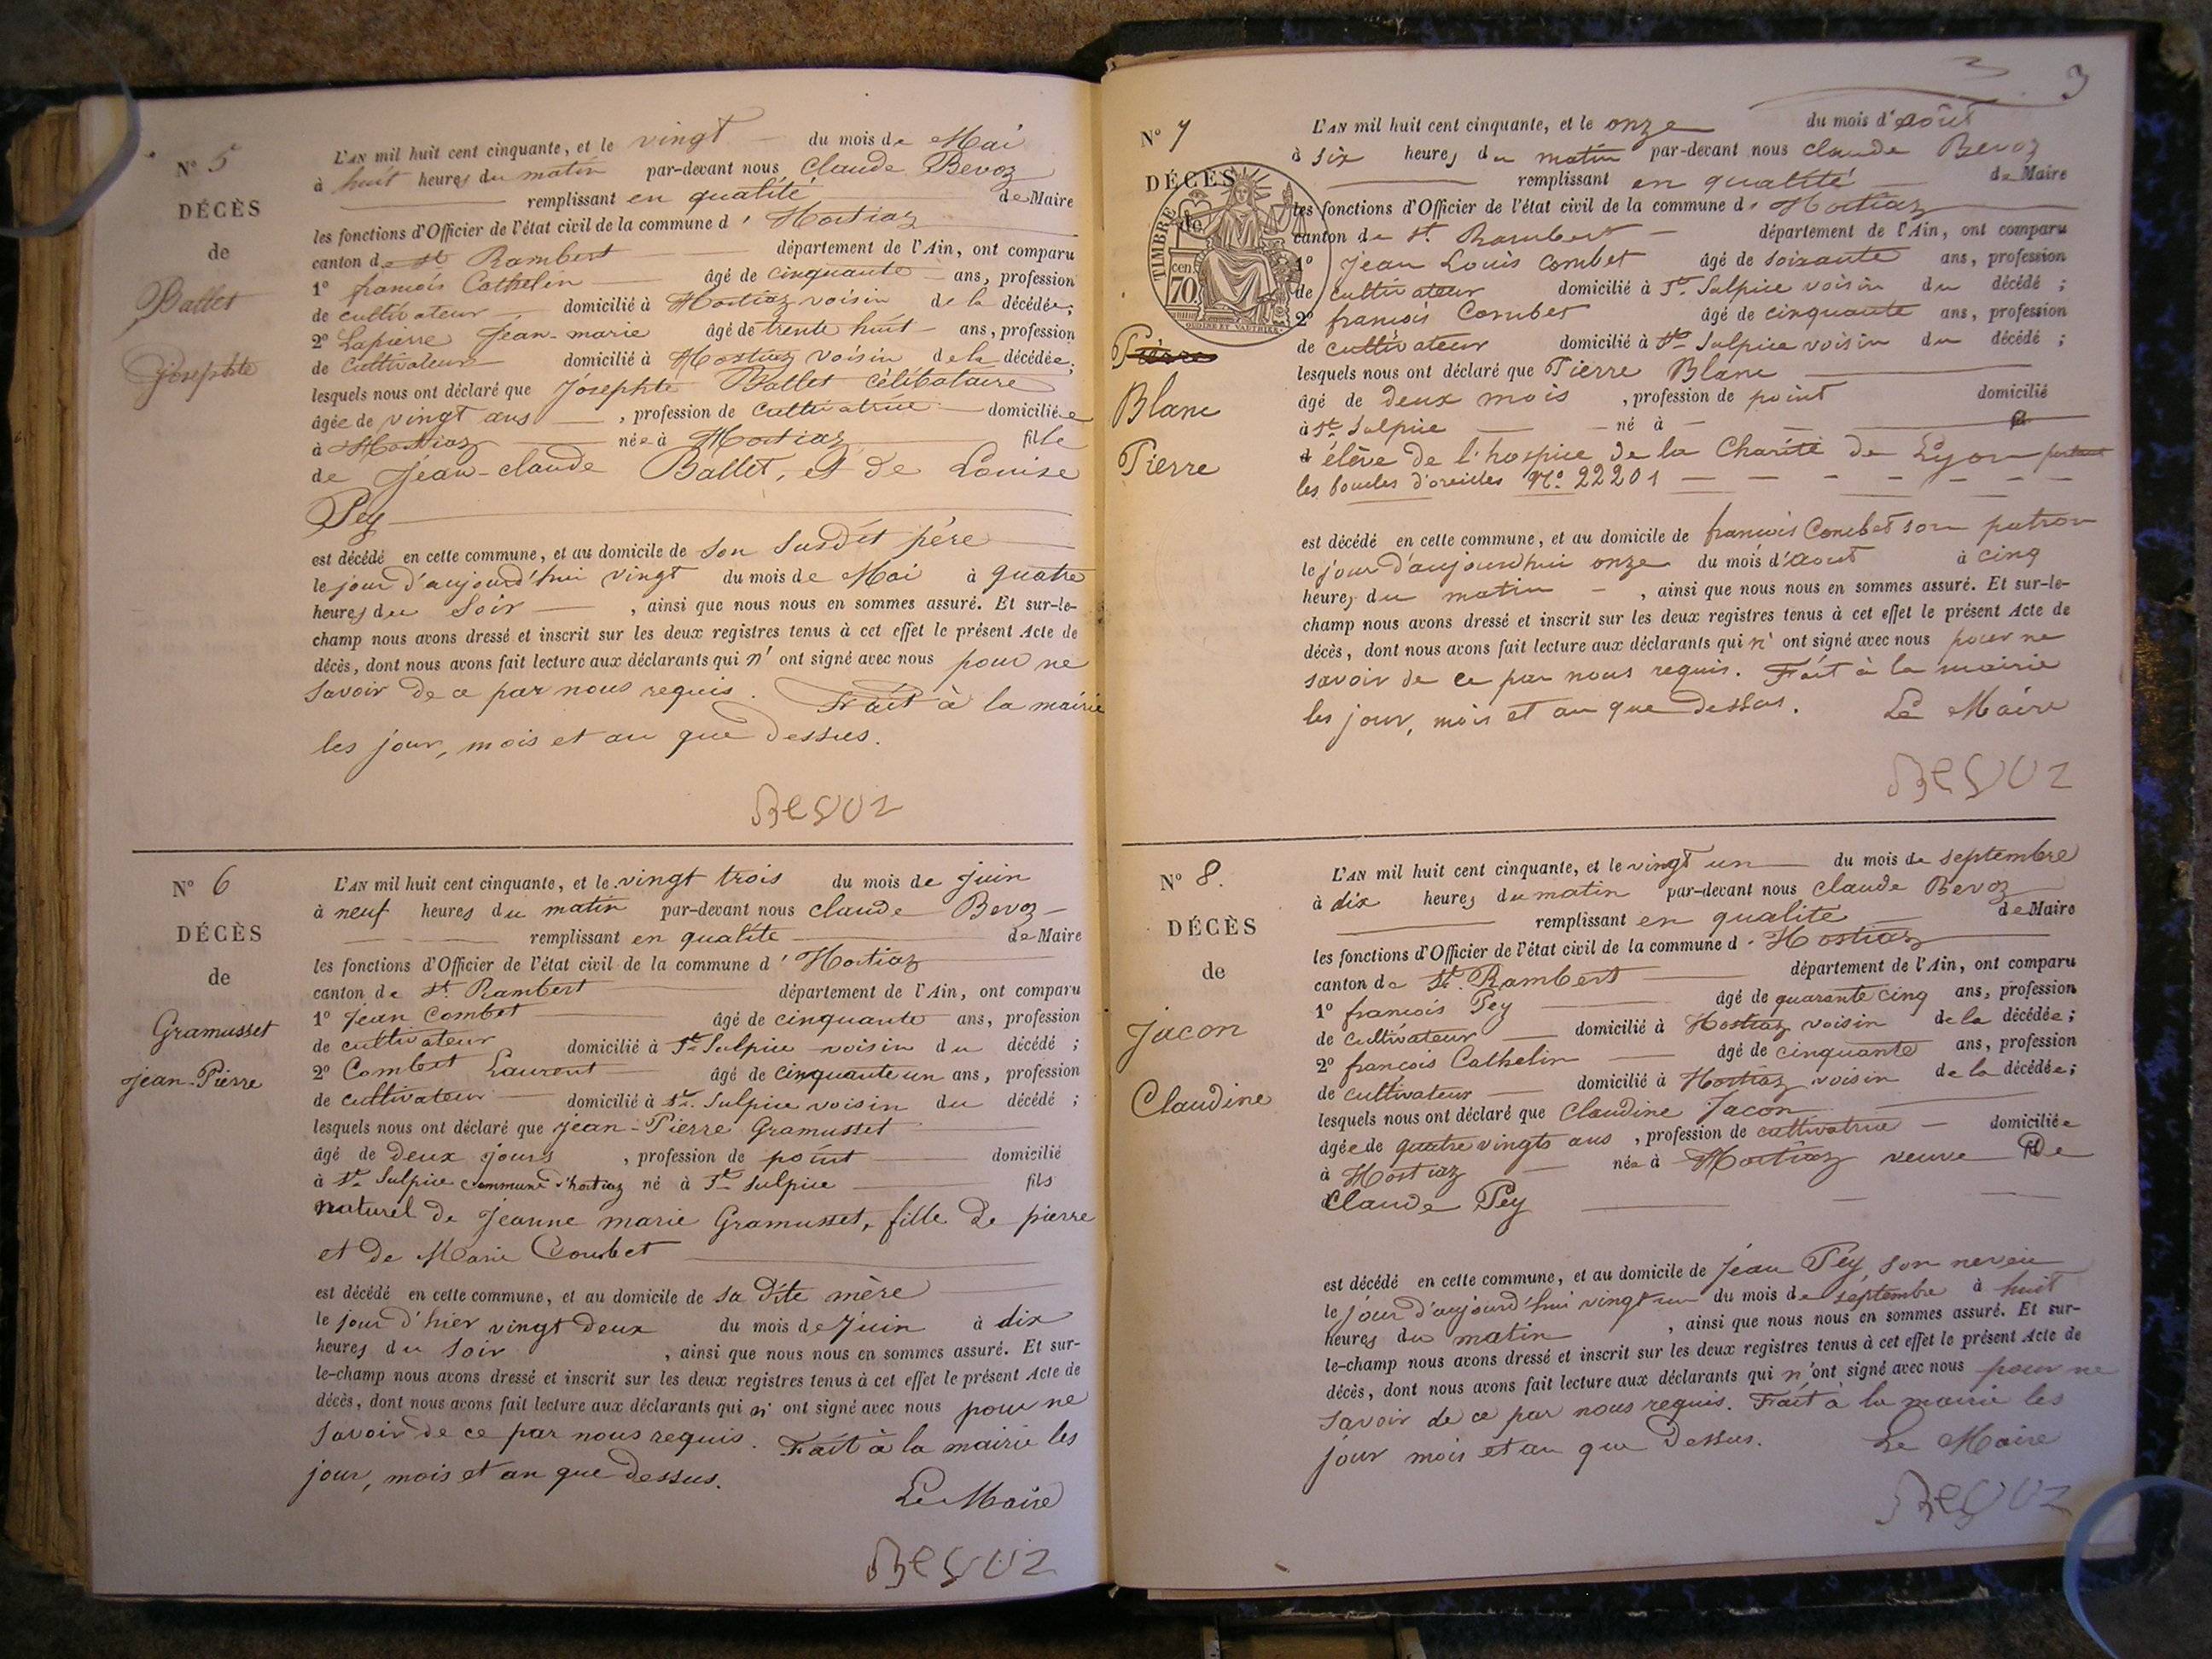 N° 5
DÉCÈS
de
Ballet
Josephte
L'AN mil huit cent cinquante, et le vingt du mois de Mai
à huit heures du matin par-devant nous Claude Bevoz
remplissant en qualité de Maire
les fonctions d'Officier de l'état civil de la commune d' Hostiaz
canton de St Rambert département de l'Ain, ont comparu
1° francois Cathelin âgé de cinquante ans, profession
de cultivateur domicilié à Hostiaz voisin de la décédée;
2° Lapierre Jean-marie âgé de trente huit ans, profession
de Cultivateur domicilié à Hostiaz voisin de la décédée;
lesquels nous ont déclaré que Josephte Ballet célibataire
âgée de vingt ans, profession de cultivatrice domiciliée
à Hostiaz née à Hostiaz fille
de Jean-claude Ballet, et de Louise
Pey
est décédé en cette commune, et au domicile de son susdit père
le jour d'aujourd'hui vingt du mois de Mai à quatre
heures du soir, ainsi que nous nous en sommes assuré. Et sur-le-
champ nous avons dressé et inscrit sur les deux registres tenus à cet effet le présent Acte de
décès, dont nous avons fait lecture aux déclarants qui n' ont signé avec nous pour ne
savoir de ce par nous requis. Fait à la mairie
les jour, mois et an que dessus.
Bevoz
N° 6
DÉCÈS
de
Gramusset
jean-Pierre
L'AN mil huit cent cinquante, et le vingt trois du mois de juin
à neuf heures du matin par-devant nous claude Bevoz
remplissant en qualité de Maire
les fonctions d'Officier de l'état civil de la commune d' Hostiaz
canton de St. Rambert département de l'Ain, ont comparu
1° Jean Combet âgé de cinquante ans, profession
de cultivateur domicilié à St Sulpice voisin du décédé ;
2° Combet Laurent âgé de cinquante un ans, profession
de cultivateur domicilié à St. Sulpice voisin du décédé ;
lesquels nous ont déclaré que jean-Pierre Gramusset
âgé de deux jours, profession de point domicilié
à St Sulpice commune d'hostiaz né à St Sulpice fils
naturel de Jeanne marie Gramusset, fille de pierre
et de Marie Combet
est décédé en cette commune, et au domicile de sa dite mère
le jour d'hier vingt deux du mois de Juin à dix
heures du soir, ainsi que nous nous en sommes assuré. Et sur-
le-champ nous avons dressé et inscrit sur les deux registres tenus à cet effet le présent Acte de
décès, dont nous avons fait lecture aux déclarants qui n' ont signé avec nous pour ne
savoir de ce par nous requis. Fait à la mairie les
jour, mois et an que dessus.
Le Maire
Bevoz
3
N° 7
DÉCÈS
de
TIMBRE
cen.
70
OUDINÉ ET VAUTHIER
Pierre
Blanc
Pierre
L'AN mil huit cent cinquante, et le onze du mois d'août
à six heures du matin par-devant nous claude Bevoz
remplissant en qualité de Maire
les fonctions d'Officier de l'état civil de la commune d' Hostiaz
canton de St. Rambert département de l'Ain, ont comparu
1° Jean Louis Combet âgé de soixante ans, profession
de cultivateur domicilié à St. Sulpice voisin du décédé ;
2° francois Combet âgé de cinquante ans, profession
de cultivateur domicilié à St Sulpice voisin du décédé ;
lesquels nous ont déclaré que Pierre Blanc
âgé de deux mois, profession de point domicilié
à St. Sulpice né à
élève de l'hospice de la Charité de Lyon portant
les boucles d'oreilles N° 22201
est décédé en cette commune, et au domicile de francois Combet son patron
le jour d'aujourd'hui onze du mois d'août à cinq
heures du matin, ainsi que nous nous en sommes assuré. Et sur-le-
champ nous avons dressé et inscrit sur les deux registres tenus à cet effet le présent Acte de
décès, dont nous avons fait lecture aux déclarants qui n' ont signé avec nous pour ne
savoir de ce par nous requis. Fait à la mairie
les jour, mois et an que dessus. Le Maire
Bevoz
N° 8.
DÉCÈS
de
Jacon
Claudine
L'AN mil huit cent cinquante, et le vingt un du mois de septembre
à dix heures du matin par-devant nous claude Bevoz
remplissant en qualité de Maire
les fonctions d'Officier de l'état civil de la commune d' Hostiaz
canton de St. Rambert département de l'Ain, ont comparu
1° francois Pey âgé de quarante cinq ans, profession
de cultivateur domicilié à Hostiaz voisin de la décédée;
2° francois Cathelin âgé de cinquante ans, profession
de cultivateur domicilié à Hostiaz voisin de la décédée;
lesquels nous ont déclaré que Claudine Jacon
âgée de quatre vingts ans, profession de cultivatrice domiciliée
à Hostiaz née à Hostiaz veuve De
Claude Pey
est décédé en cette commune, et au domicile de Jean Pey son neveu
le jour d'aujourd'hui vingt un du mois de septembre à huit
heures du matin, ainsi que nous nous en sommes assuré. Et sur-
le-champ nous avons dressé et inscrit sur les deux registres tenus à cet effet le présent Acte de
décès, dont nous avons fait lecture aux déclarants qui n'ont signé avec nous pour ne
savoir de ce par nous requis. Fait à la mairie les
jour mois et an que dessus. Le Maire
Bevoz